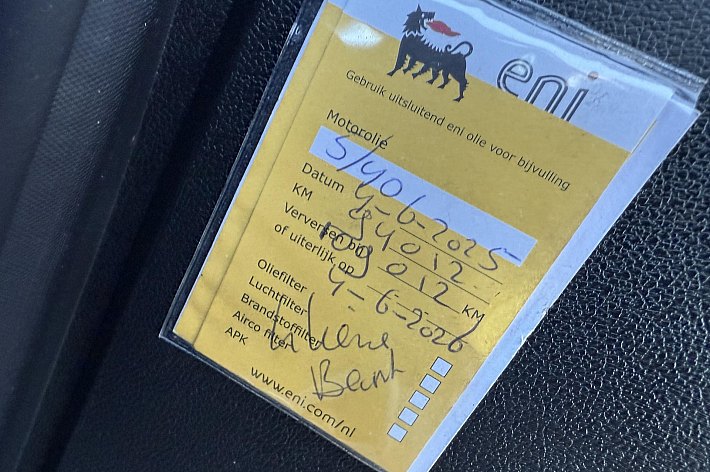 eni
Gebruik uitsluitend eni olie voor bijvulling
Motorolie 5/40
Datum 4-6-2025
KM 94012
Verversen bij 109012 KM
of uiterlijk op 4-6-2026
Oliefilter
Luchtfilter
Brandstoffilter
Airco filter
APK
www.eni.com/nl